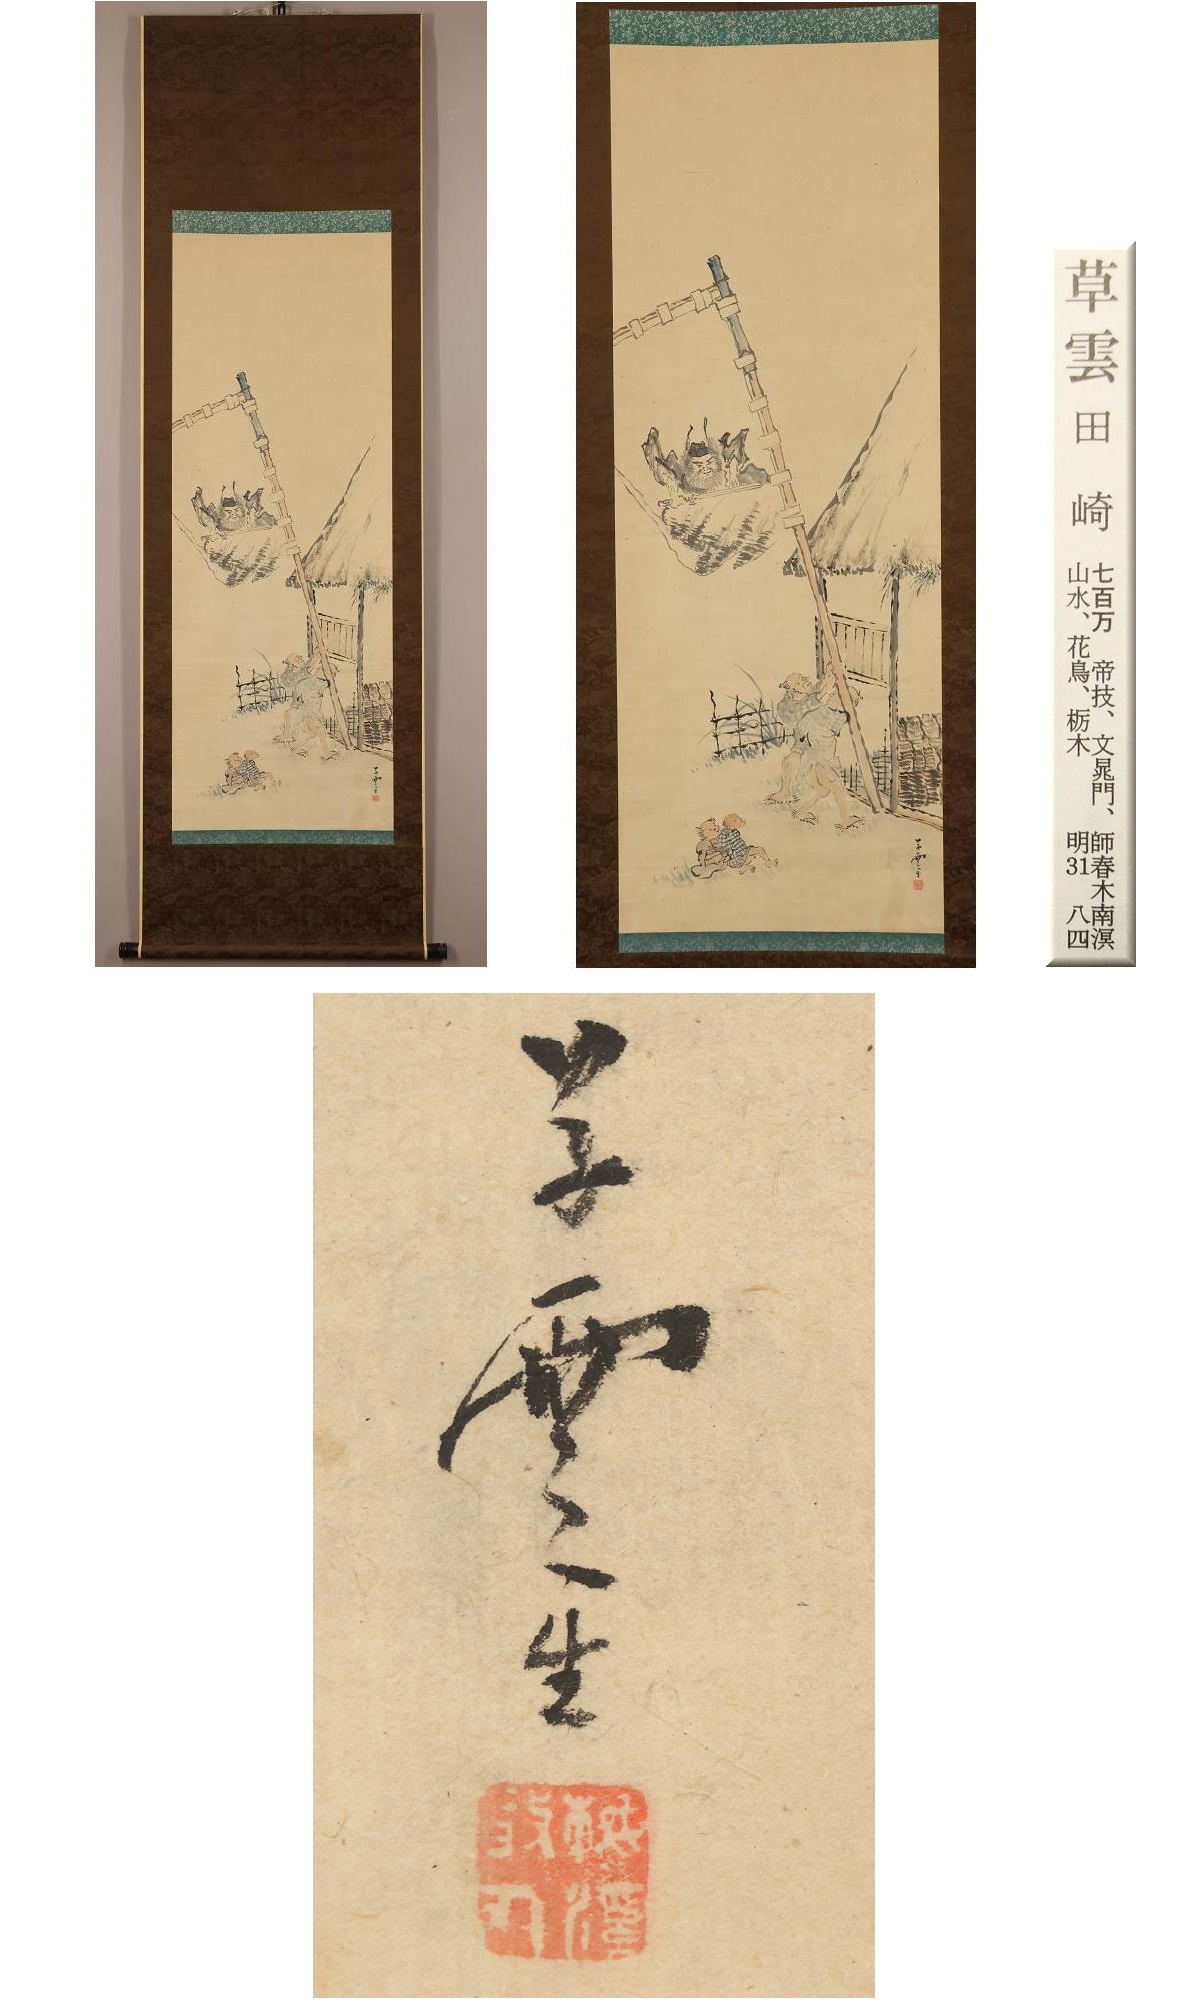 草雲 田崎
七百万 帝技、文晁門、師春木南溟
山水、花鳥、栃木 明31 八四
草雲生